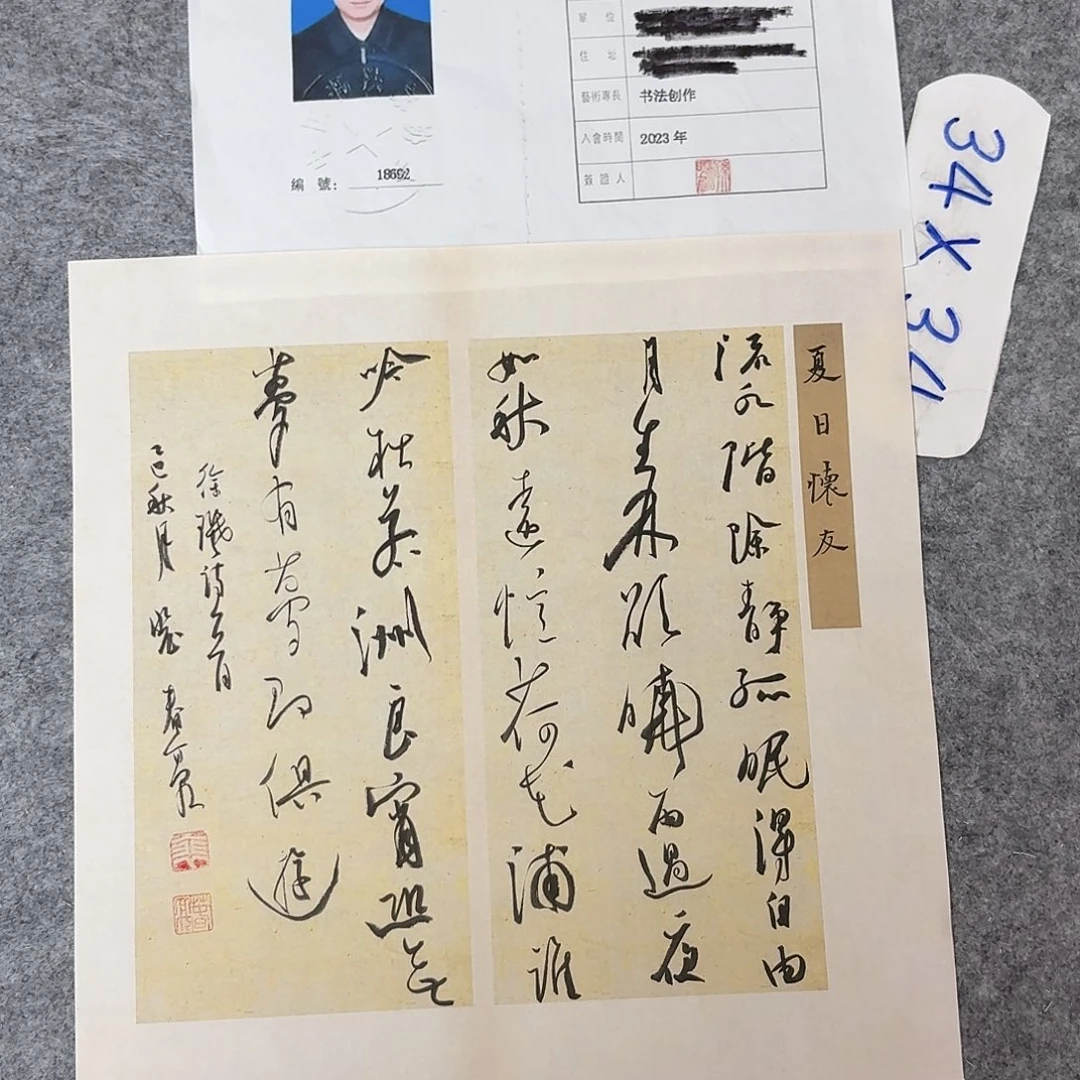 單 位
住 址
藝術專長 书法创作
入會時間 2023 年
簽證人
編 號: 18692
34X34
夏日懷友
流水階除静孤眠得自由
月生林欲曉雨過夜
如秋遠憶荷花浦誰
吟杜若洲良宵恐無
夢有夢即俱遊
徐璣詩一首
乙巳秋月